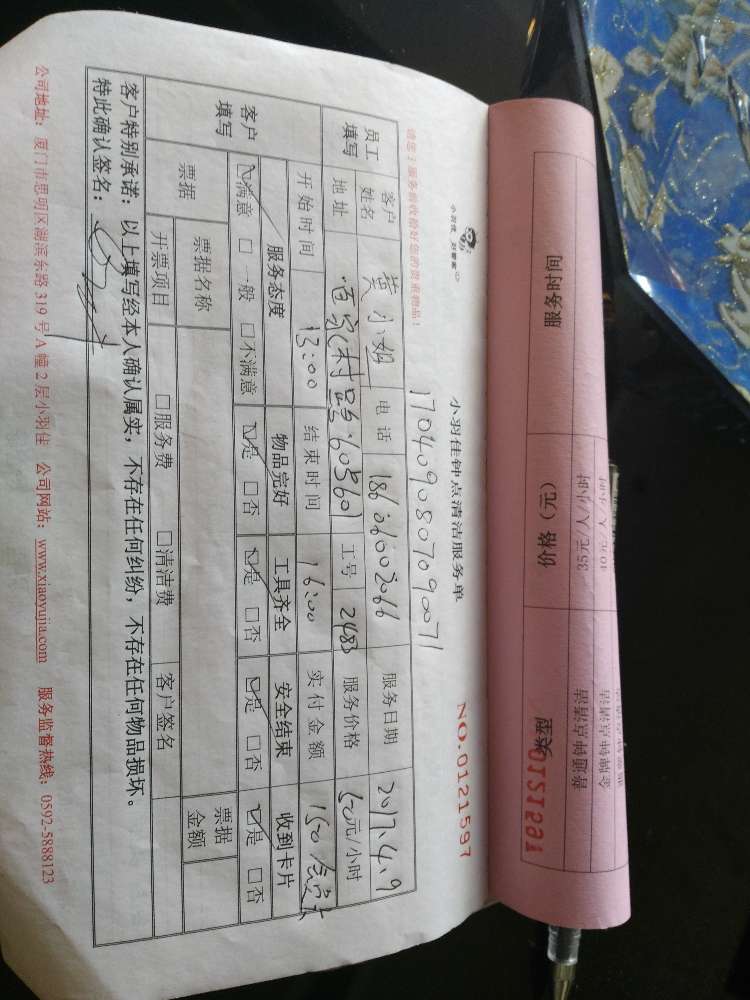 小羽佳，好管家
小羽佳钟点清洁服务单
NO.0121597
1704090807090071
请您于服务前收拾好您的贵重物品！
员工填写 客户姓名 黄小姐 电话 18606002066 服务日期 2017.4.9
地址 工号 2483 服务价格 50元/小时
开始时间 13:00 结束时间 16:00 实付金额 150
客户填写 服务态度 物品完好 工具齐全 安全结束 收到卡片
☑满意 □一般 □不满意 ☑是 □否 ☑是 □否 ☑是 □否 ☑是 □否
票据 票据名称 票据金额
开票项目 □服务费 □清洁费 客户签名
客户特别承诺：以上填写经本人确认属实，不存在任何纠纷，不存在任何物品损坏。
特此确认签名：
公司地址：厦门市思明区湖滨东路319号A幢2层小羽佳 公司网站：www.xiaoyujia.com 服务监督热线：0592-5888123
类型 价格（元） 服务时间
普通钟点清洁 35元/人/小时